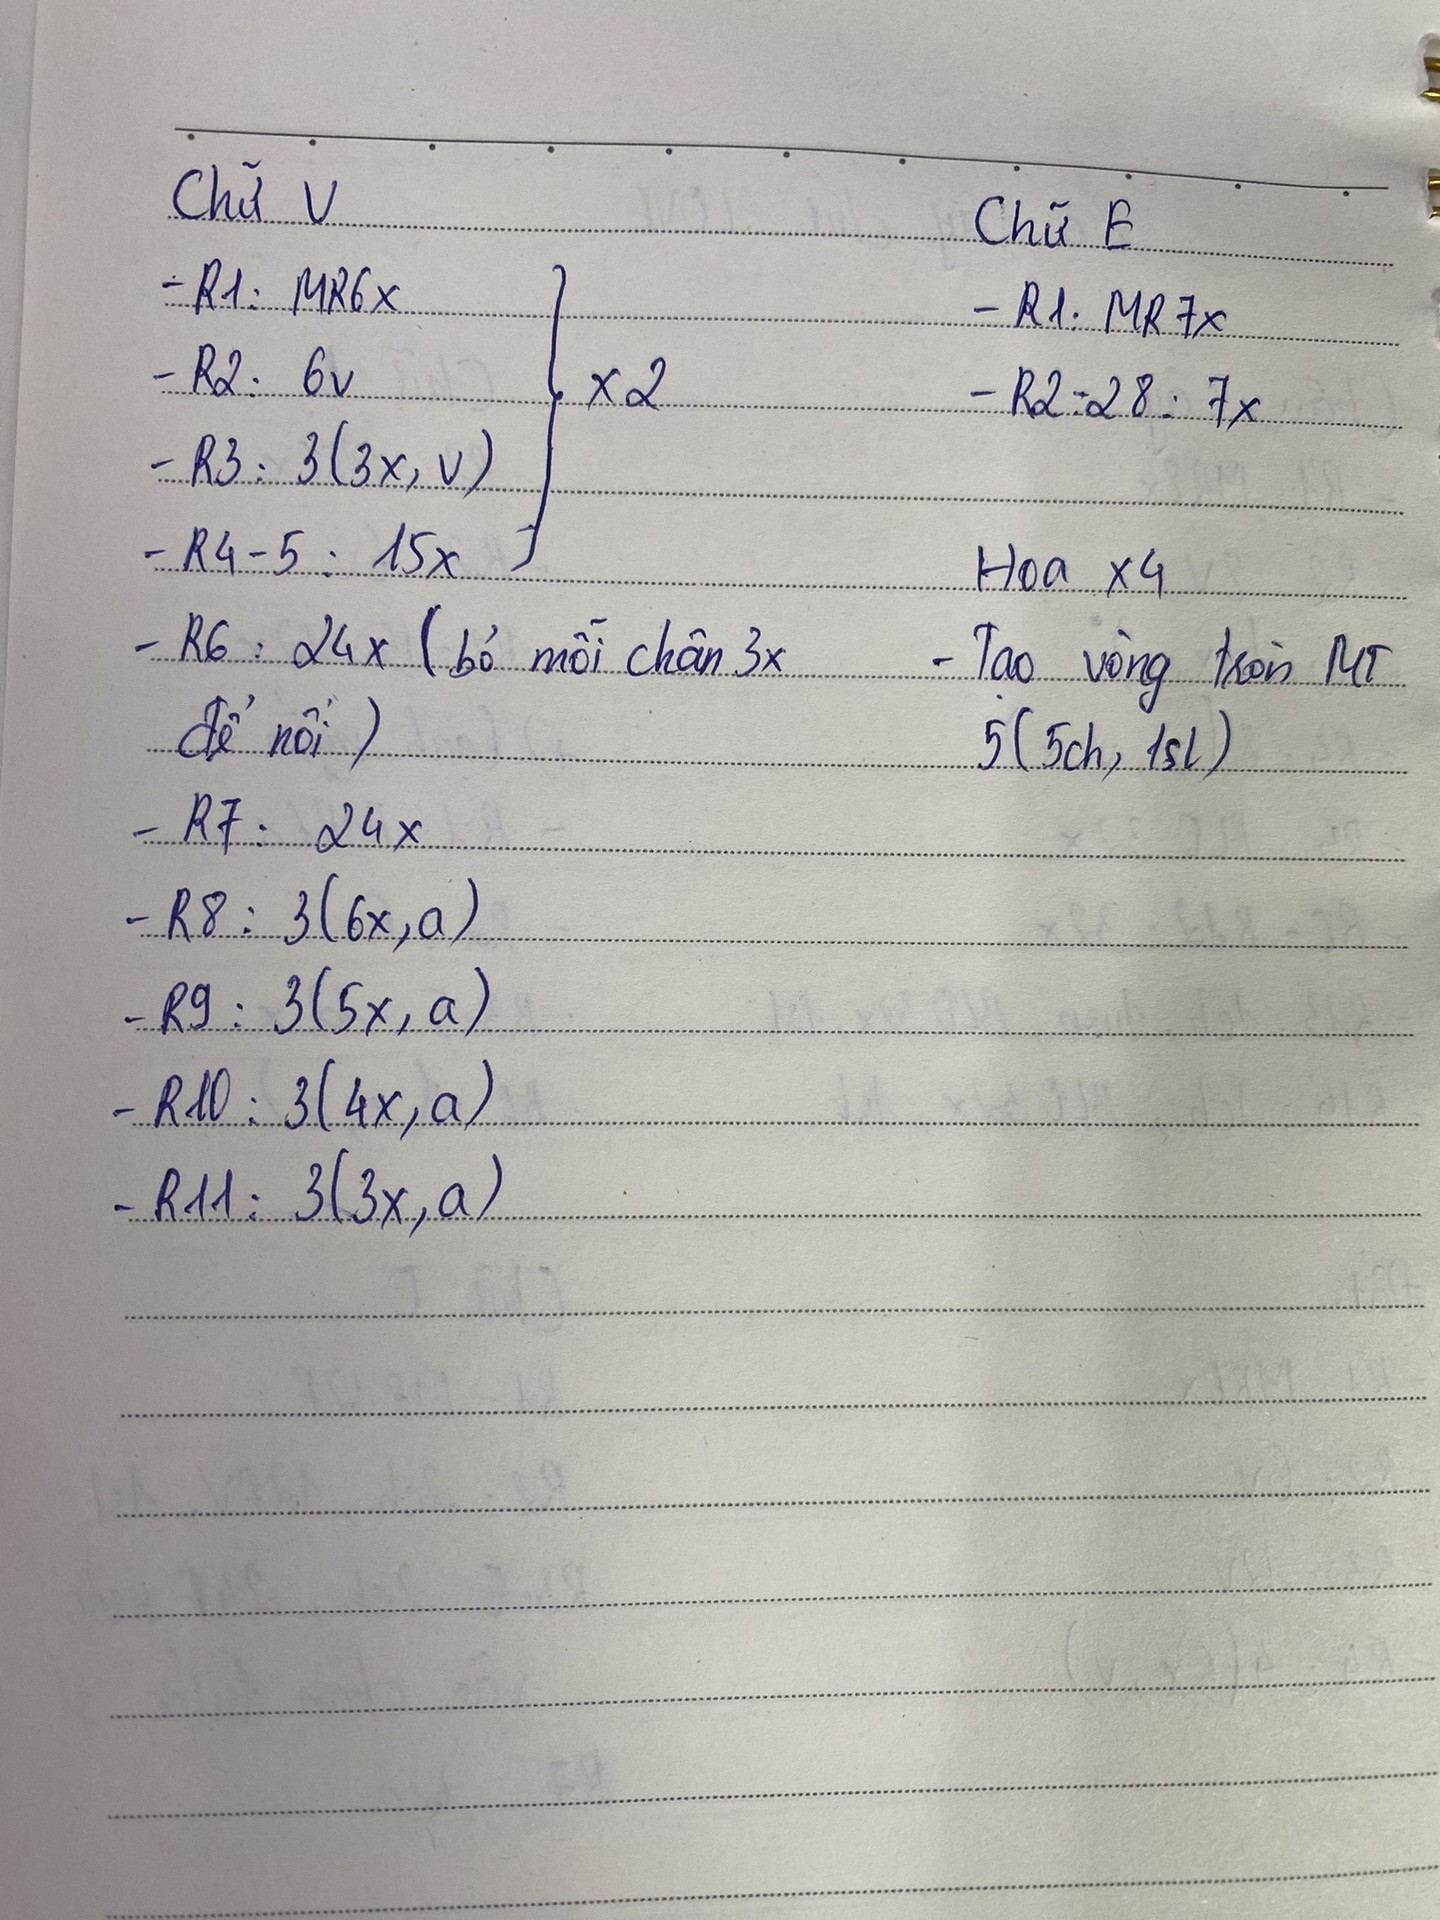 Chữ V
- R1: MR6x
- R2: 6v
- R3: 3(3x, v)
- R4-5: 15x
x2
- R6: 24x (bỏ mỗi chân 3x
để nối)
- R7: 24x
- R8: 3(6x, a)
- R9: 3(5x, a)
- R10: 3(4x, a)
- R11: 3(3x, a)
Chữ E
- R1: MR7x
- R2-28: 7x
Hoa x4
- Tạo vòng tròn MT
5(5ch, 1sl)